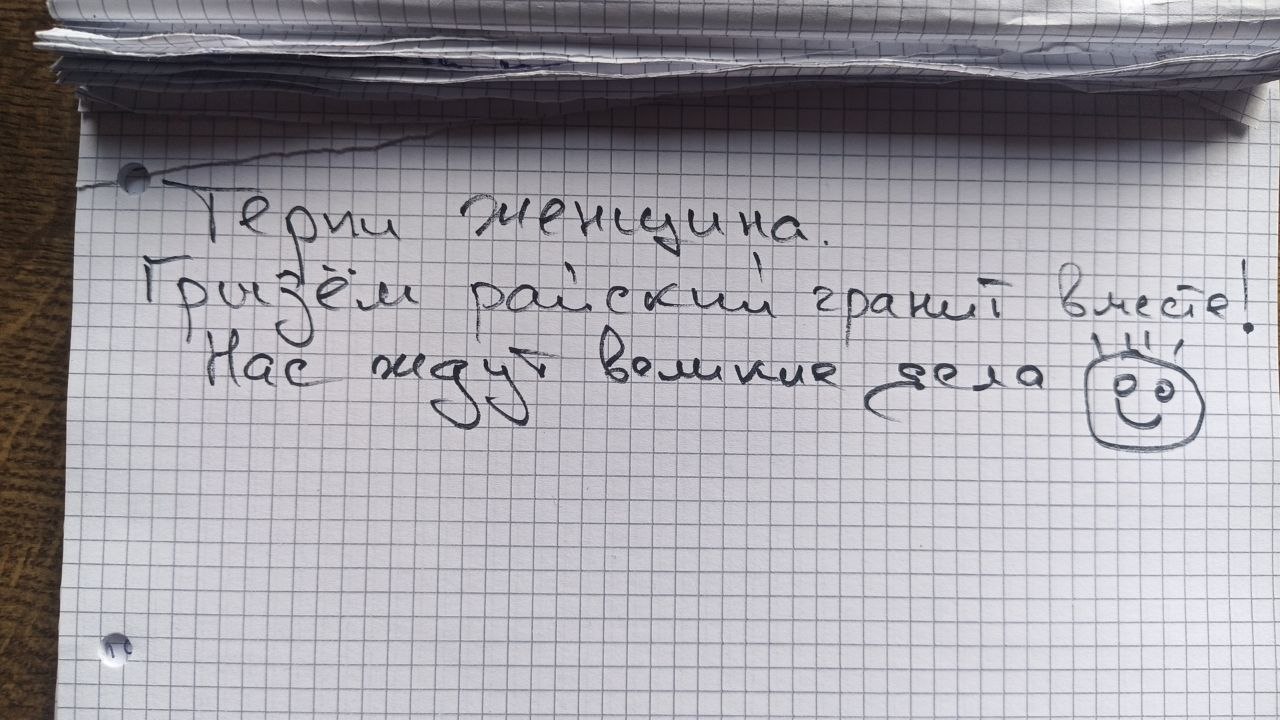 Терпи женщина.
Грызём райский гранит вместе!
Нас ждут великие дела